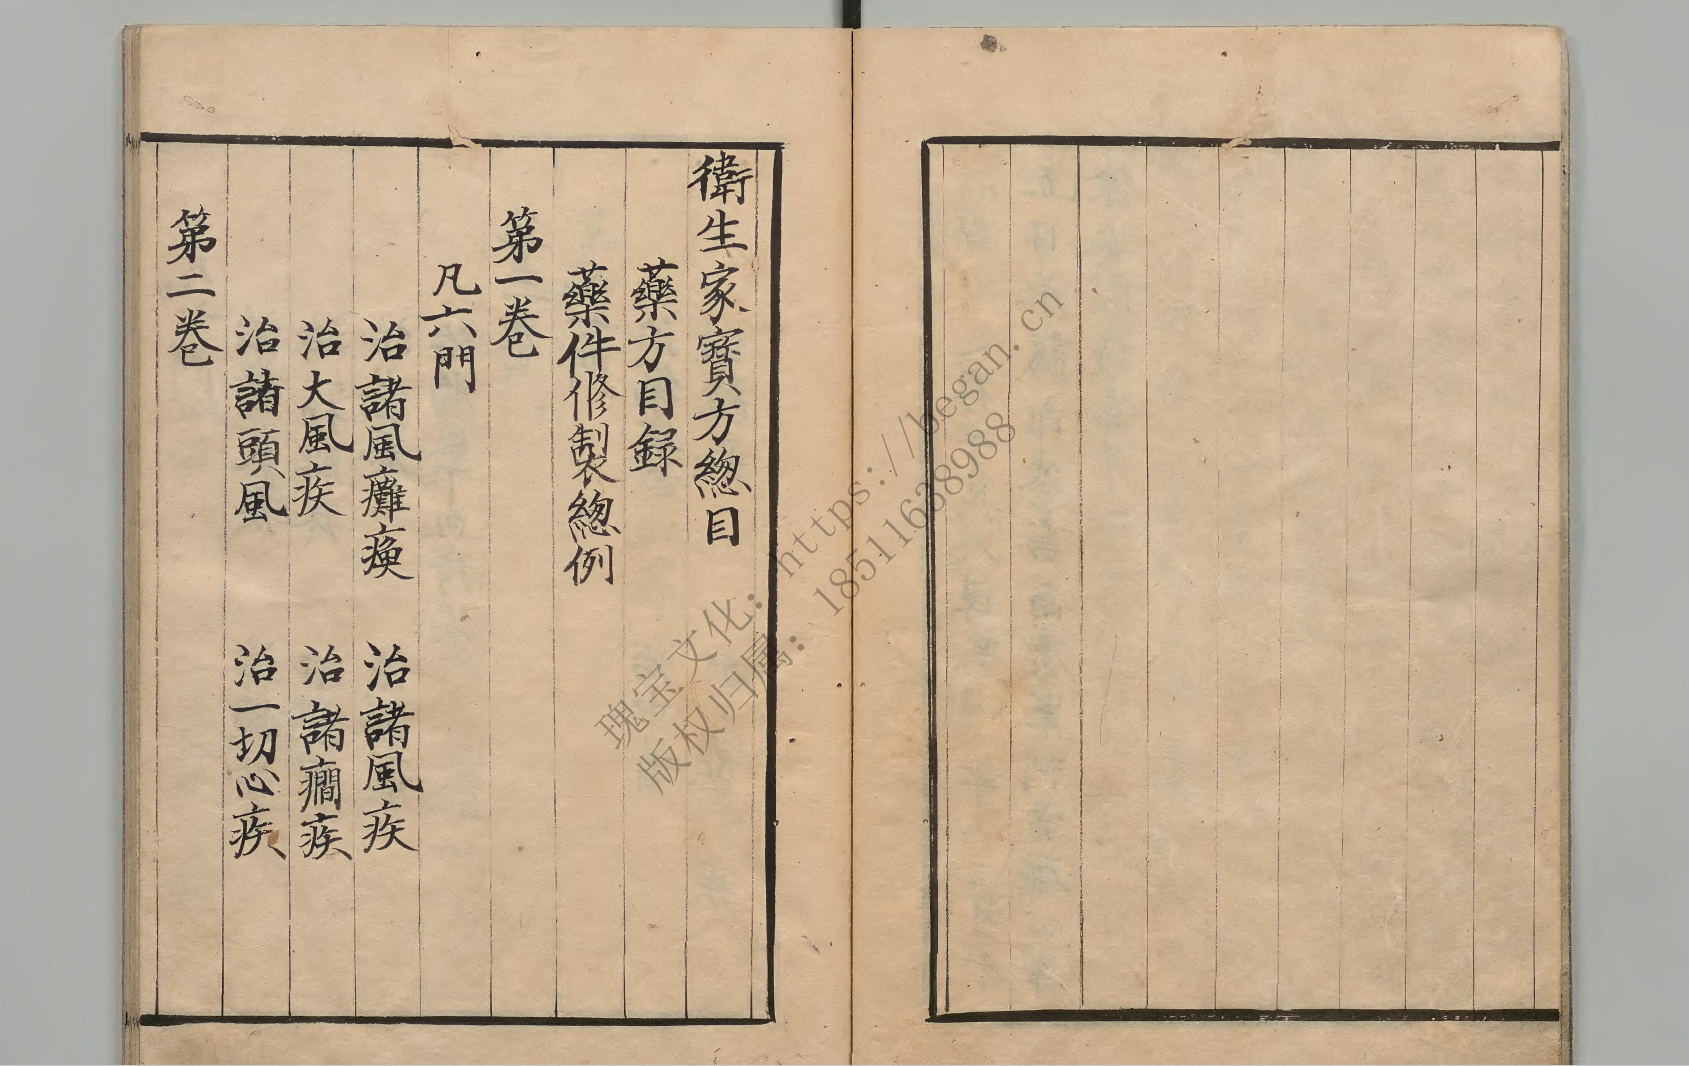 衛生家寳方緫目
藥方目録
藥件修製緫例
第一卷
凡六門
治諸風癱瘓　治諸風疾
治大風疾　治諸癇疾
治諸頭風　治一切心疾
第二卷
瑰宝文化：https://began.cn
版权归属：18511638988